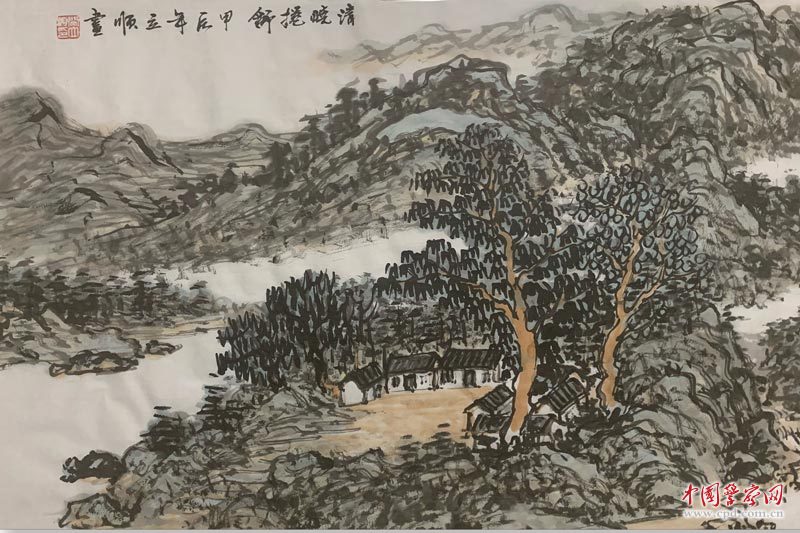 清晓捲舒 甲辰年立順畫
中国警察网
www.cpd.com.cn